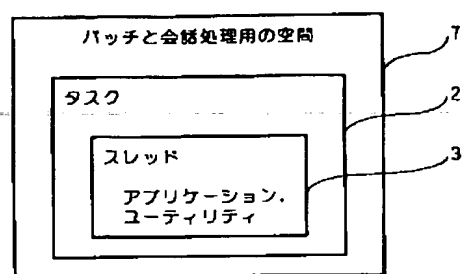 バッチと会話処理用の空間
7
タスク
2
スレッド
3
アプリケーション，
ユーティリティ